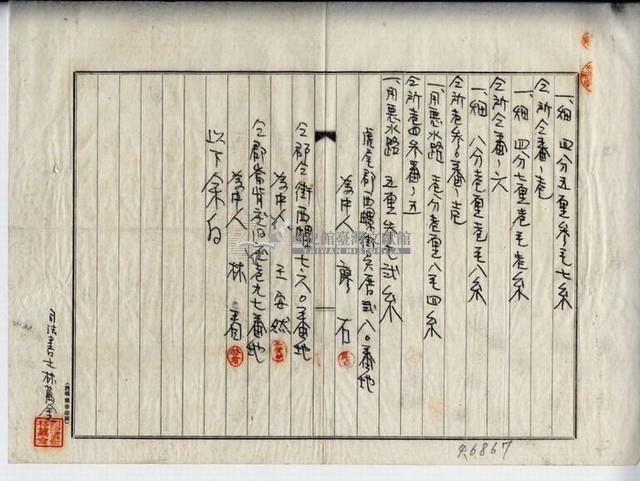 一、畑 四分五厘参毛七糸
仝所仝番ノ壱
一、畑 四分七厘壱毛壱糸
仝所仝番ノ六
一、畑 八分壱厘壱毛八糸
仝所壱参〇番ノ壱
一、用悪水路 壱分壱厘八毛四糸
仝所壱四参番ノ五
一、用悪水路 五厘参毛弐糸
虎尾郡西螺街吳厝弐八〇番地
為中人 廖 石
仝郡仝街西螺七六〇番地
為中人 王安然
仝郡崙背庄 壱九七番地
為中人 林 看
以下余白
司法書士林萬全
史6867